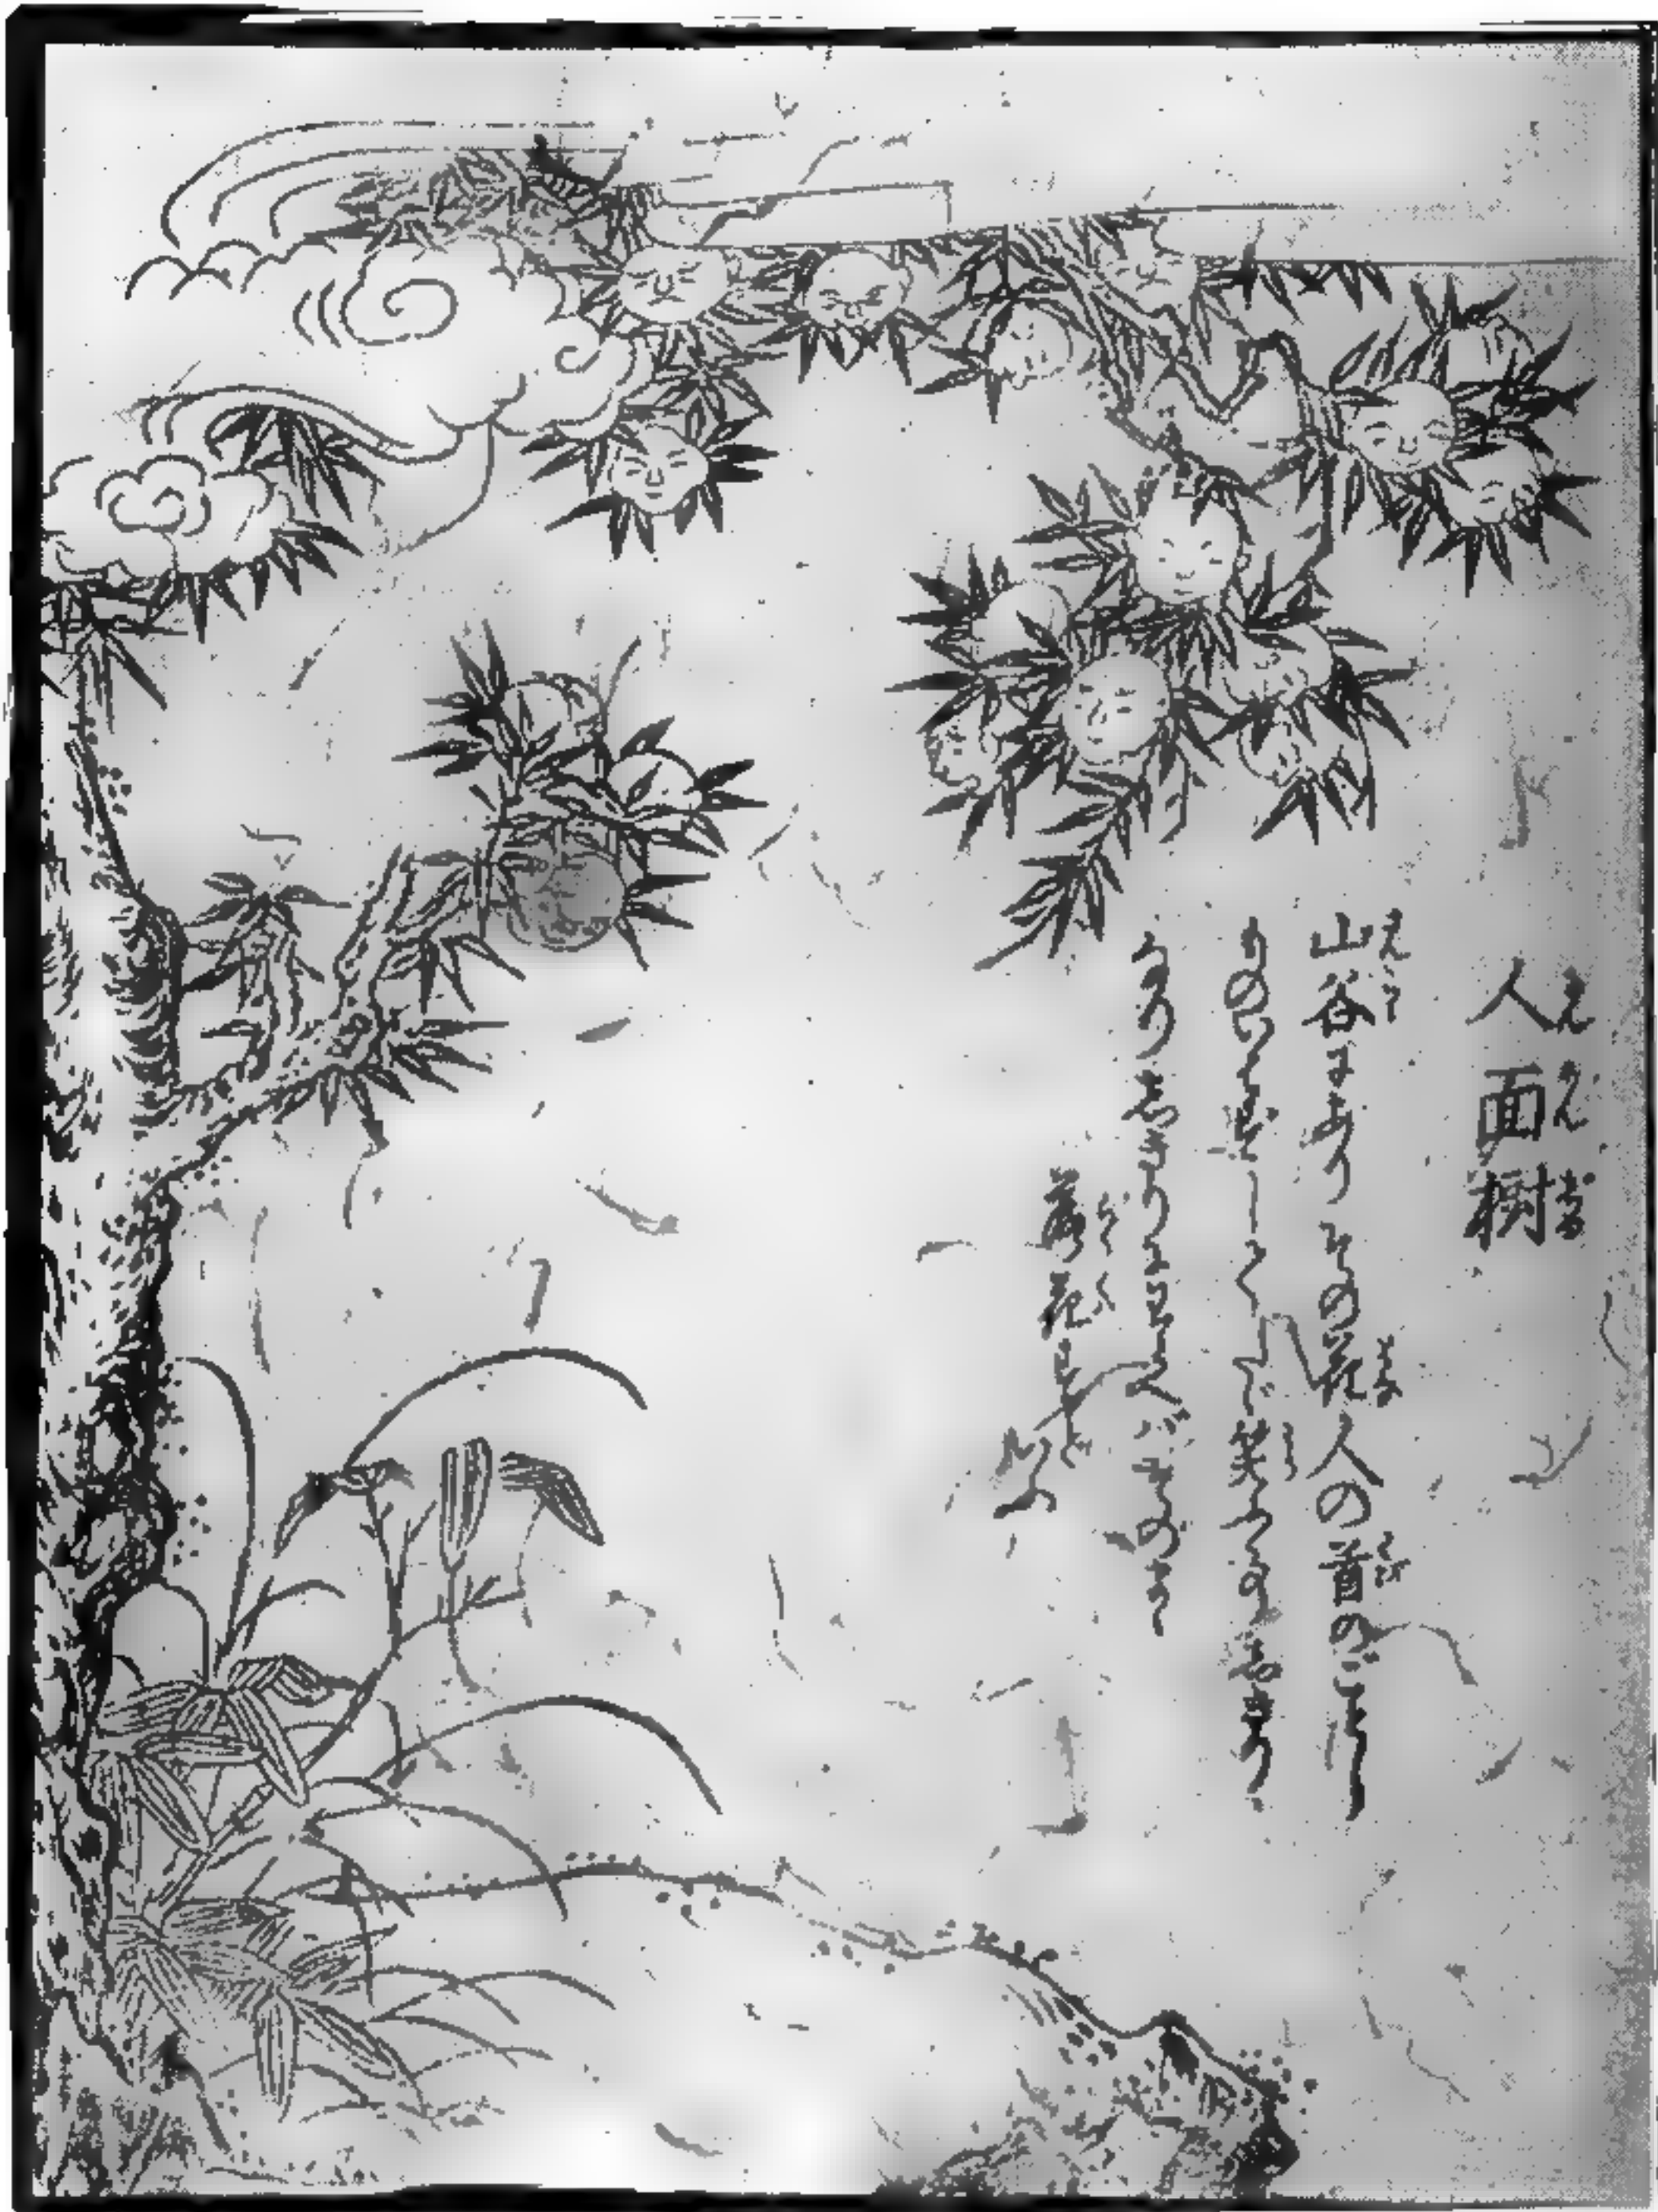 人面樹
山谷にありその花人の首のごとし
ものいはずしてたゞ笑ふ事しきり
なりしきりにわらへばそのまゝ
落花すと
いふ